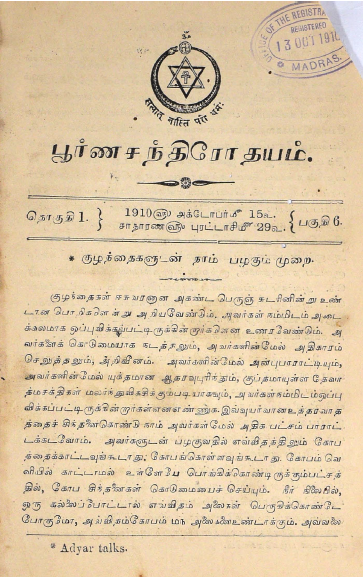 OFFICE OF THE REGISTRAR
REGISTERED
13 OCT 1910
MADRAS.
சத்யாத் நாஸ்தி பரோ தர்ம:
பூர்ணசந்திரோதயம்.
தொகுதி 1.
1910௵ அக்டோபர்௴ 15௳.
சாதாரண௵ புரட்டாசி௴ 29௳.
பகுதி 6.
* குழந்தைகளுடன் நாம் பழகும் முறை.
குழந்தைகள் ஈசுவரனான அகண்ட பெருஞ் சுடரினின்று உண்
டான பொறிகளென்று அறியவேண்டும். அவர்கள் நம்மிடம் அடைக்
கலமாக ஒப்புவிக்கப்பட்டிருக்கிறார்களென உணரவேண்டும். அ
வர்களைக் கொடுமையாக நடத்தலும், அவர்களின்மேல் அதிகாரம்
செலுத்தலும், அறிவீனம். அவர்களின்மேல் அன்புபாராட்டியும்,
அவர்களின்மேல் யுக்தமான ஆதரவுபுரிந்தும், குப்தமாயுள்ள தேவா
த்மசக்திகள் மலர்ந்துவிகசிக்கும்படியாகவும், அவர்கள்நம்மிடம்ஒப்பு
விக்கப்பட்டிருக்கிறார்கள்எனஎண்ணுக. இவ்வுயர்வானஉத்தரவாத
த்தைச் சிந்தனைகொண்டு நாம் அவர்கள்மேல் அதிக பட்சம் பாராட்
டக்கடவோம். அவர்களுடன் பழகுவதில் எவ்விதத்திலும் கோப
த்தைக்காட்டவுங்கூடாது; கோபங்கொள்ளவுங்கூடாது. கோபம் வெ
ளியில் காட்டாமல் உள்ளேயே பொங்கிக்கொண்டிருக்கும்பட்சத்
தில், கோப சிந்தனைகள் கொடுமையைச் செய்யும். நீர் நிலையில்,
ஒரு கல்லைப்போட்டால் எவ்விதம் அலைகள் பெருகிக்கொண்டே
போகுமோ, அவ்விதம்கோபம் மந அலைகளைஉண்டாக்கும். அவ்வலை
* Adyar talks.